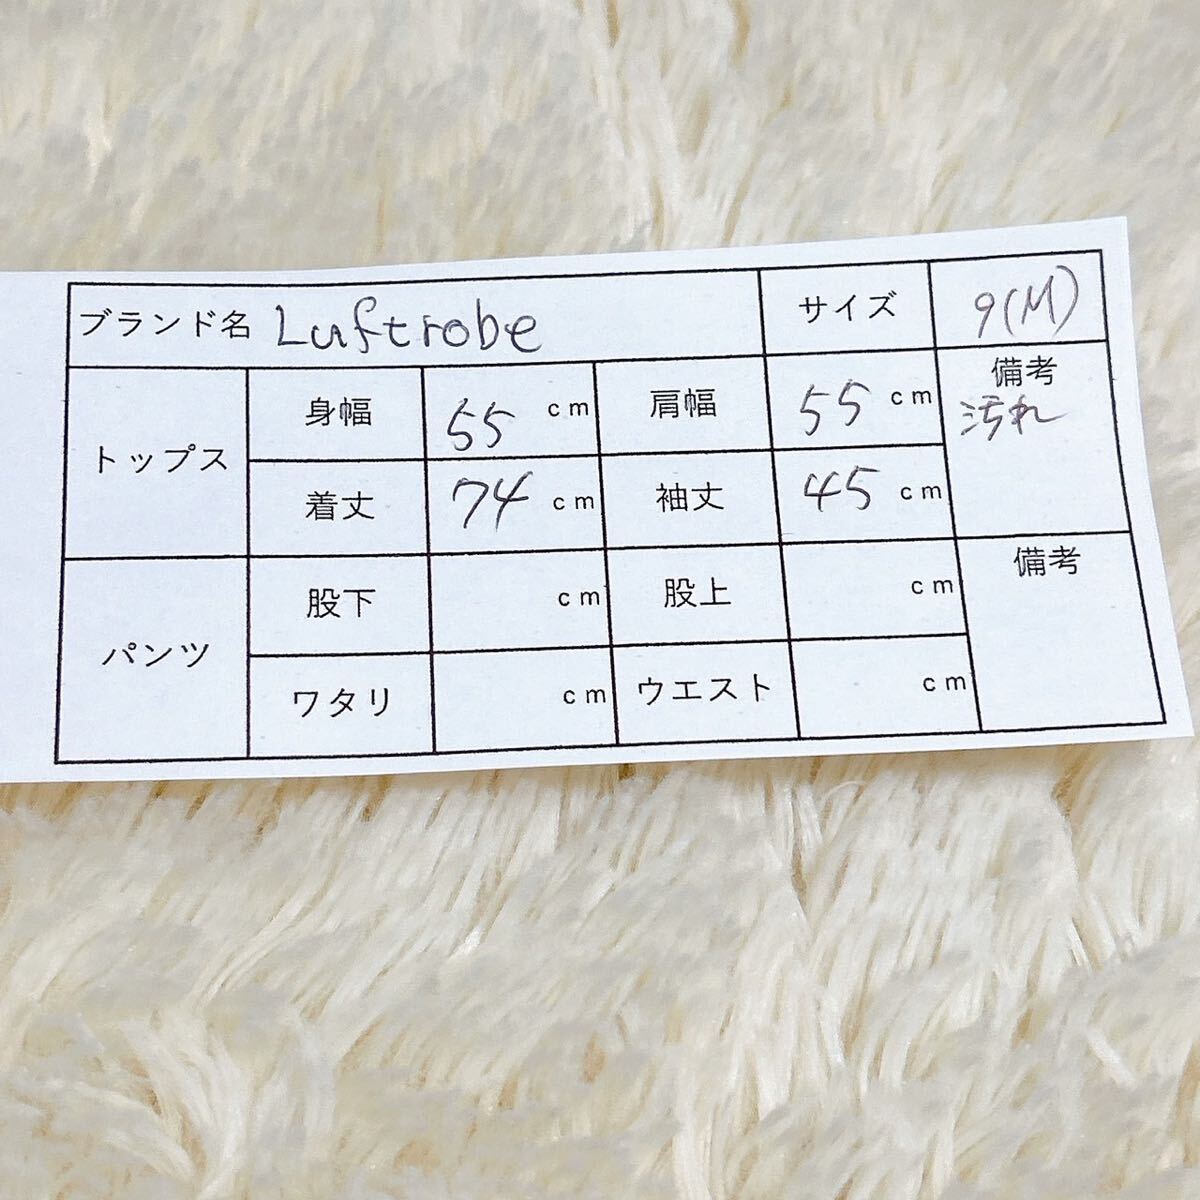 ブランド名 Luftrobe サイズ 9(M)
トップス 身幅 55 cm 肩幅 55 cm 備考 汚れ
着丈 74 cm 袖丈 45 cm
パンツ 股下 cm 股上 cm 備考
ワタリ cm ウエスト cm